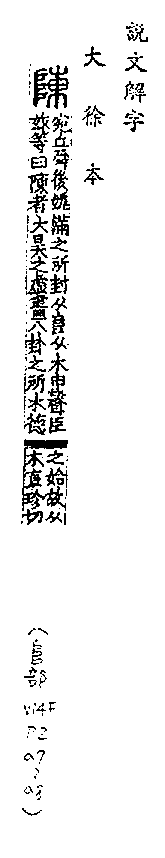 說文解字
大徐本
陳
宛丘舜後嬀滿之所封从𨸏从木申聲臣
鉉等曰陳者大昊之虛畫八卦之所木德
之始故从
木直珍切
(𨸏部
V14F
P2
a7
a8)